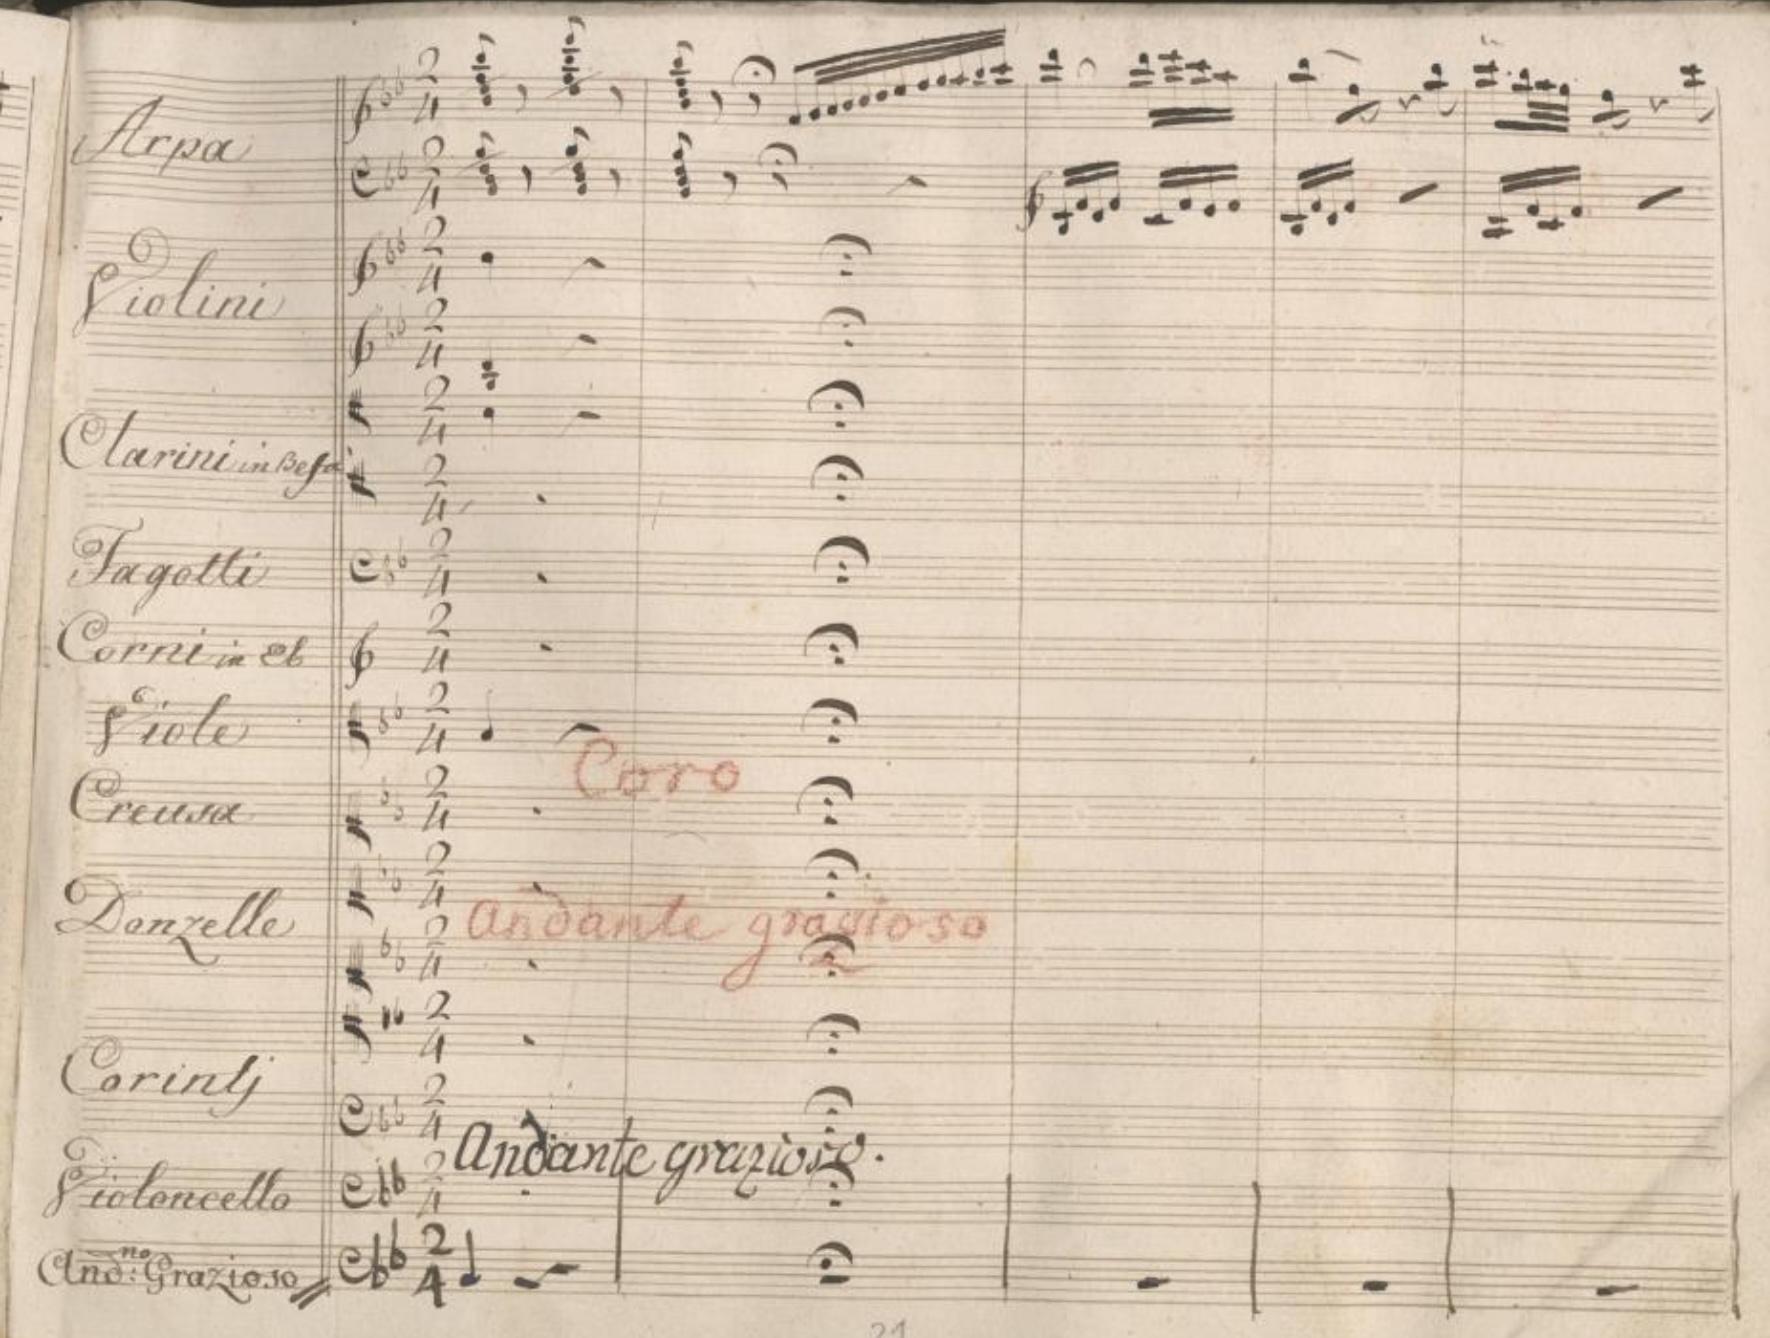 Arpa
Violini
Clarini in Beffa
Fagotti
Corni in Eb
Viole
Coro
Creusa
Donzelle
Andante grazioso
Corintj
Andante grazioso.
Violoncello
And:no Grazioso
21